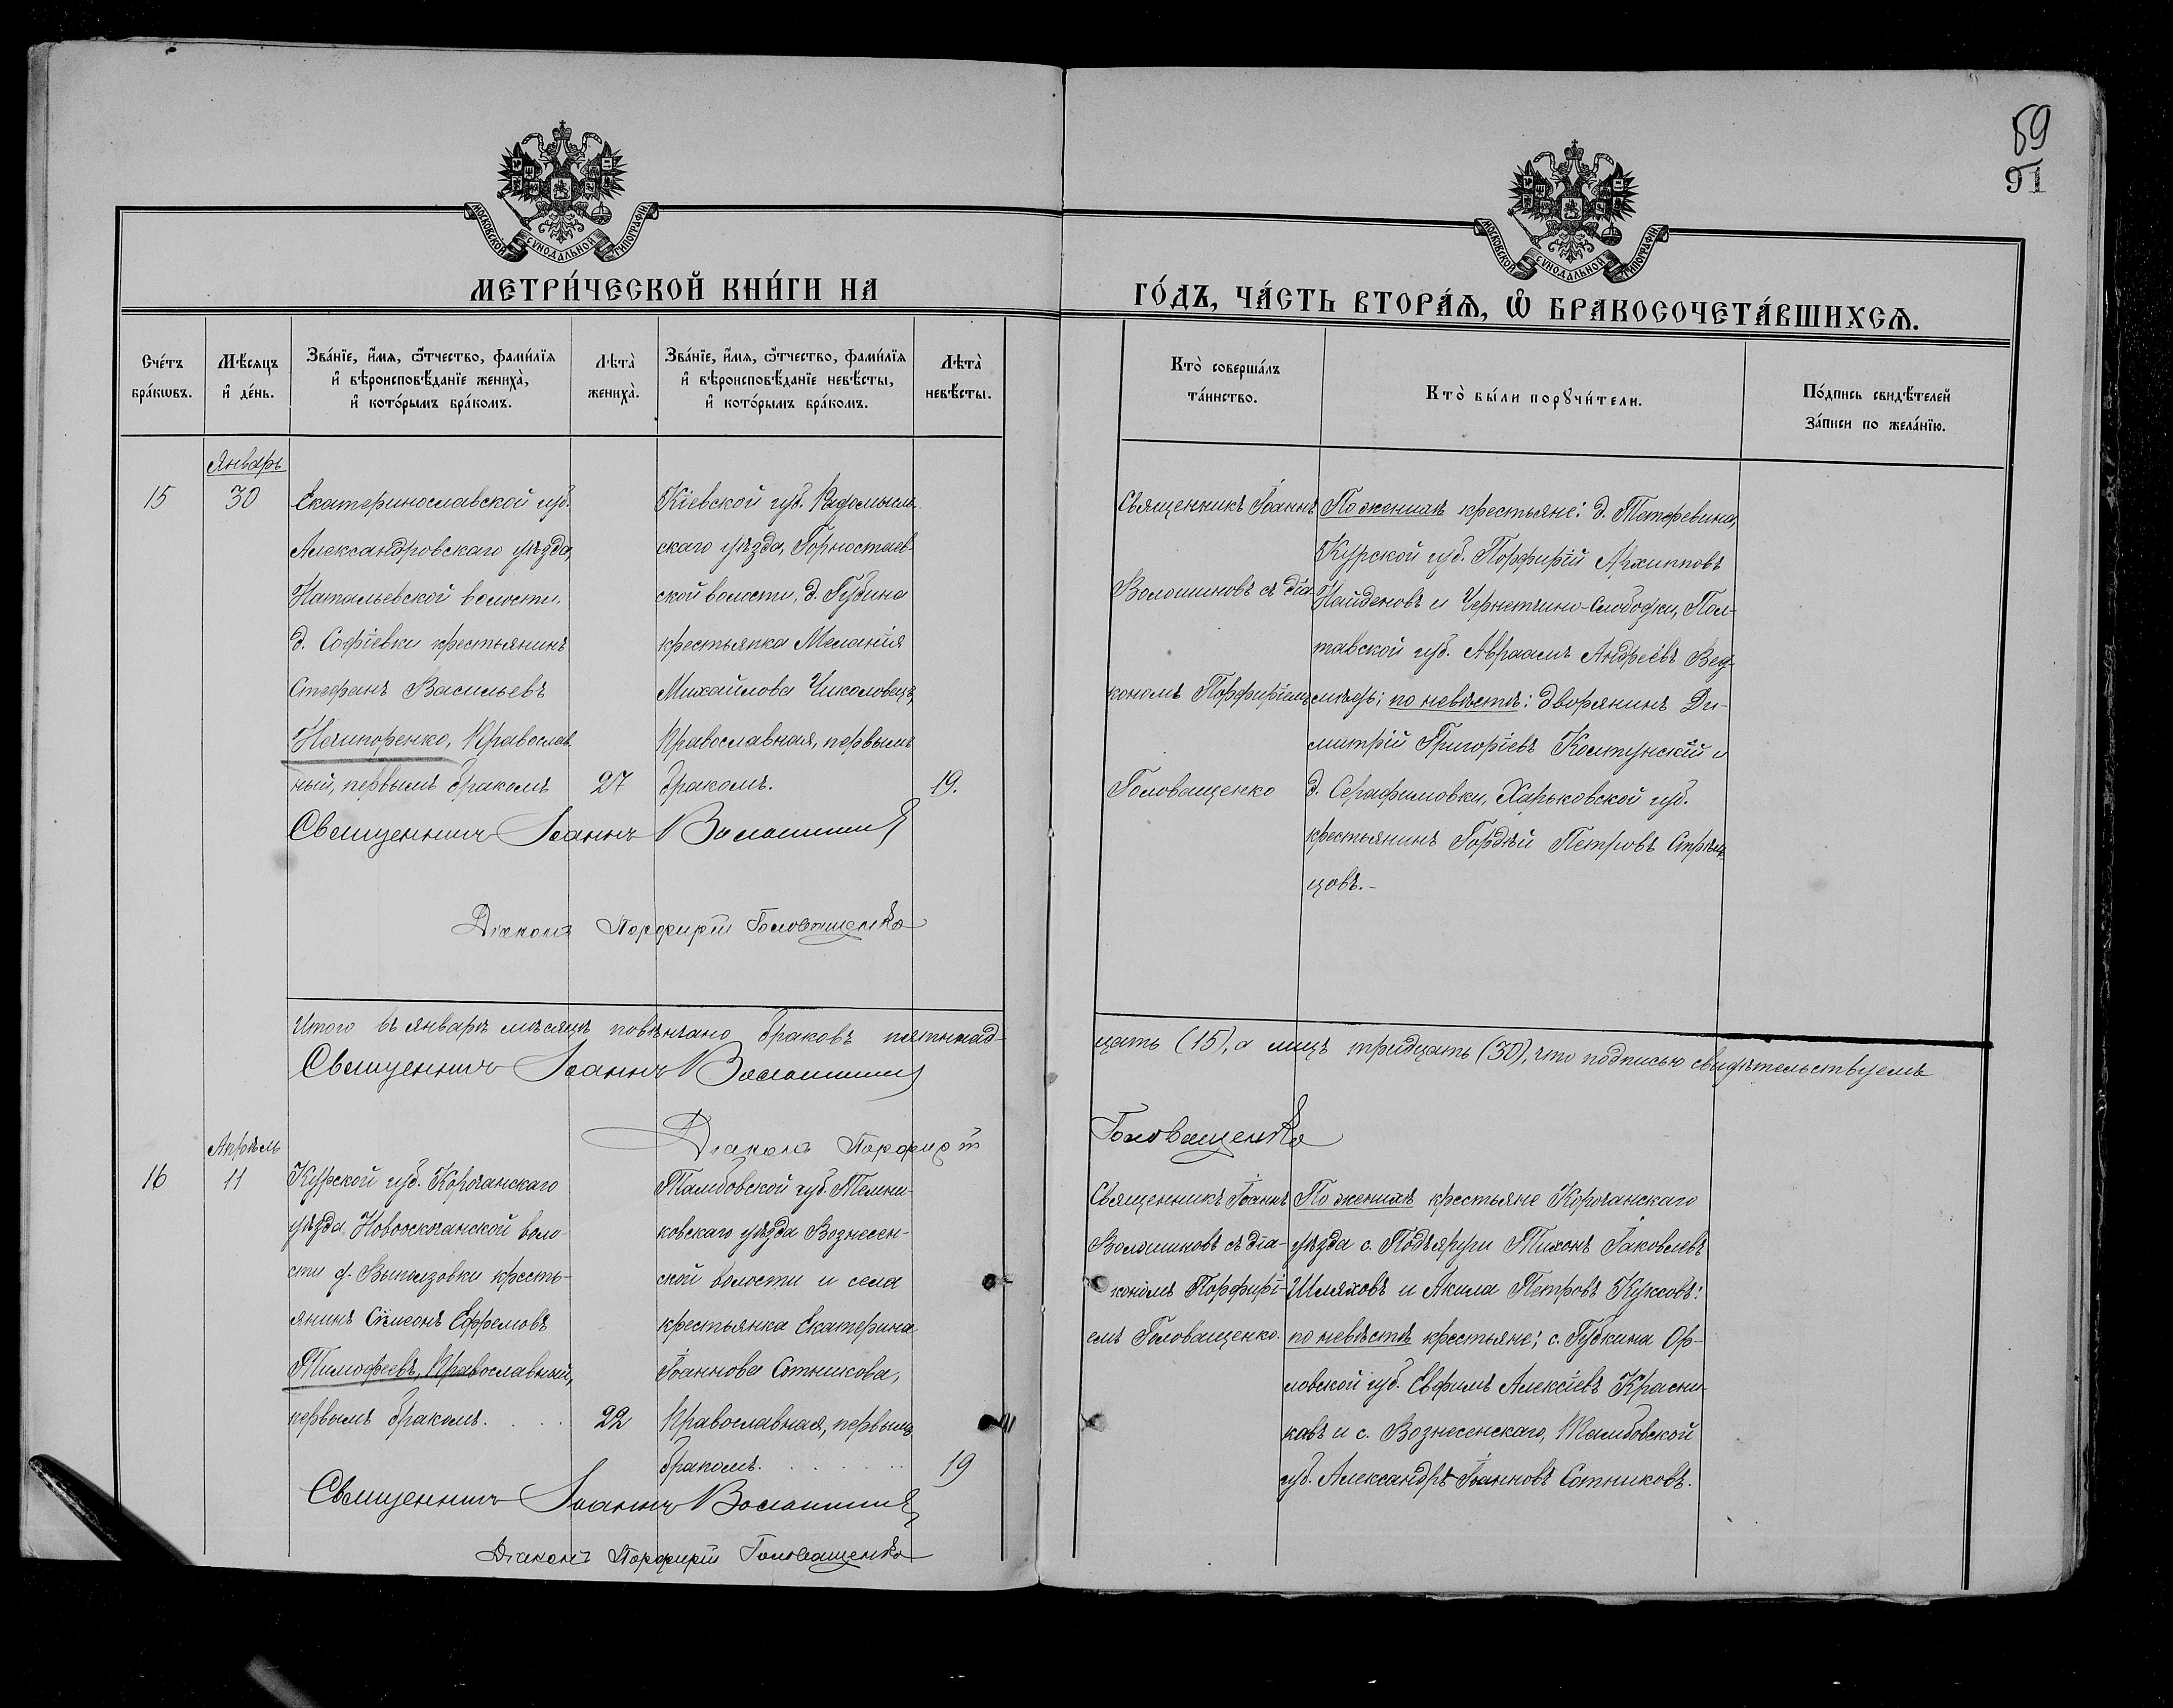 59
91
МОСКОВСКОЙ СУНОДАЛЬНОЙ ТИПОГРАФІИ
МОСКОВСКОЙ СУНОДАЛЬНОЙ ТИПОГРАФІИ
МЕТРИ́ЧЕСКОЙ КНИ́ГИ НА
ГО́ДЪ, ЧА́СТЬ ВТОРА́Ѧ, Ѡ҆ БРАКОСОЧЕТА́ВШИХСѦ.
Сче́тъ бра́кѡвъ.
Мѣ́сяцъ и҆ де́нь.
Зва́нїе, и҆́мѧ, ѻ҆́тчество, фами́лїѧ
и҆ вѣроисповѣ́данїе жениха̀,
и҆ кото́рымъ бра́комъ.
Лѣта̀ жениха̀.
Зва́нїе, и҆́мѧ, ѻ҆́тчество, фами́лїѧ
и҆ вѣроисповѣ́данїе невѣ́сты,
и҆ кото́рымъ бра́комъ.
Лѣта̀ невѣ́сты.
Кто̀ соверша́лъ
та́инство.
Кто̀ бы́ли порꙋчи́тели.
По́дпись свидѣ́телей
за́писи по жела́нїю.
Январь
15
30
Екатеринославской губ.
Александровскаго уѣзда,
Натальевской волости,
д. Софіевки крестьянинъ
Стефанъ Васильевъ
Нечипоренко, Православ-
ный, первымъ бракомъ
27
Кіевской губ. Радомысль-
скаго уѣзда, Горностаев-
ской волости, д. Губина
крестьянка Меланія
Михайлова Чиколовецъ,
Православная, первымъ
бракомъ.
19.
Священникъ Іоаннъ
Волошиновъ съ діа-
кономъ Порфиріемъ
Головащенко
По женихѣ крестьяне: д. Тетеревина,
Курской губ. Порфирій Архиповъ
Найденовъ и Чернетчино-Слободки, Пол-
тавской губ. Авраамъ Андреевъ Вед-
медь; по невѣстѣ: дворянинъ Ди-
митрій Григоріевъ Колтунскій и
д. Серафимовки, Харьковской губ.
крестьянинъ Гордѣй Петровъ Стрѣль-
цовъ.-
Священникъ Іоаннъ Волошинов
Діаконъ Порфирій Головащенко
Итого въ январѣ мѣсяцѣ повѣнчано браковъ пятнад-
цать (15), а лицъ тридцать (30), что подписью свидѣтельствуемъ
Священникъ Іоаннъ Волошинов
Діаконъ Порфирій
Головащенко
Апрѣль
16
11
Курской губ. Корочанскаго
уѣзда Новооскочанской воло-
сти д. Выползовки кресть-
янинъ Сімеонъ Ефремовъ
Тимофеевъ, Православный,
первымъ бракомъ. . . .
22
Тамбовской губ. Темни-
ковскаго уѣзда Вознесен-
ской волости и села
крестьянка Екатерина
Іоаннова Сотникова,
Православная, первымъ
бракомъ. . . . . . .
19
Священникъ Іоаннъ
Волошиновъ съ діа-
кономъ Порфирі-
емъ Головащенко.
По женихѣ крестьяне Корочанскаго
уѣзда с. Подъяруги Тихонъ Іаковлевъ
Шляховъ и Акила Петровъ Куксовъ:
по невѣстѣ крестьяне: с. Губкина Ор-
ловской губ. Евфимъ Алексіевъ Красни-
ковъ и с. Вознесенскаго, Тамбовской
губ. Александръ Іоанновъ Сотниковъ.
Священникъ Іоаннъ Волошинов
Діаконъ Порфирій Головащенко